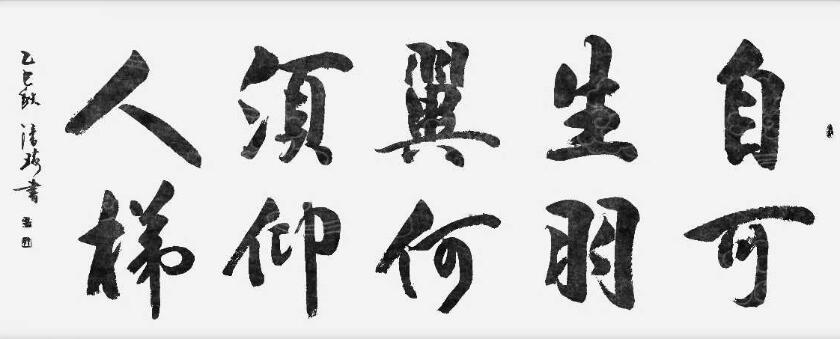 自可
生羽
翼何
須仰
人梯
乙巳秋
清琦書